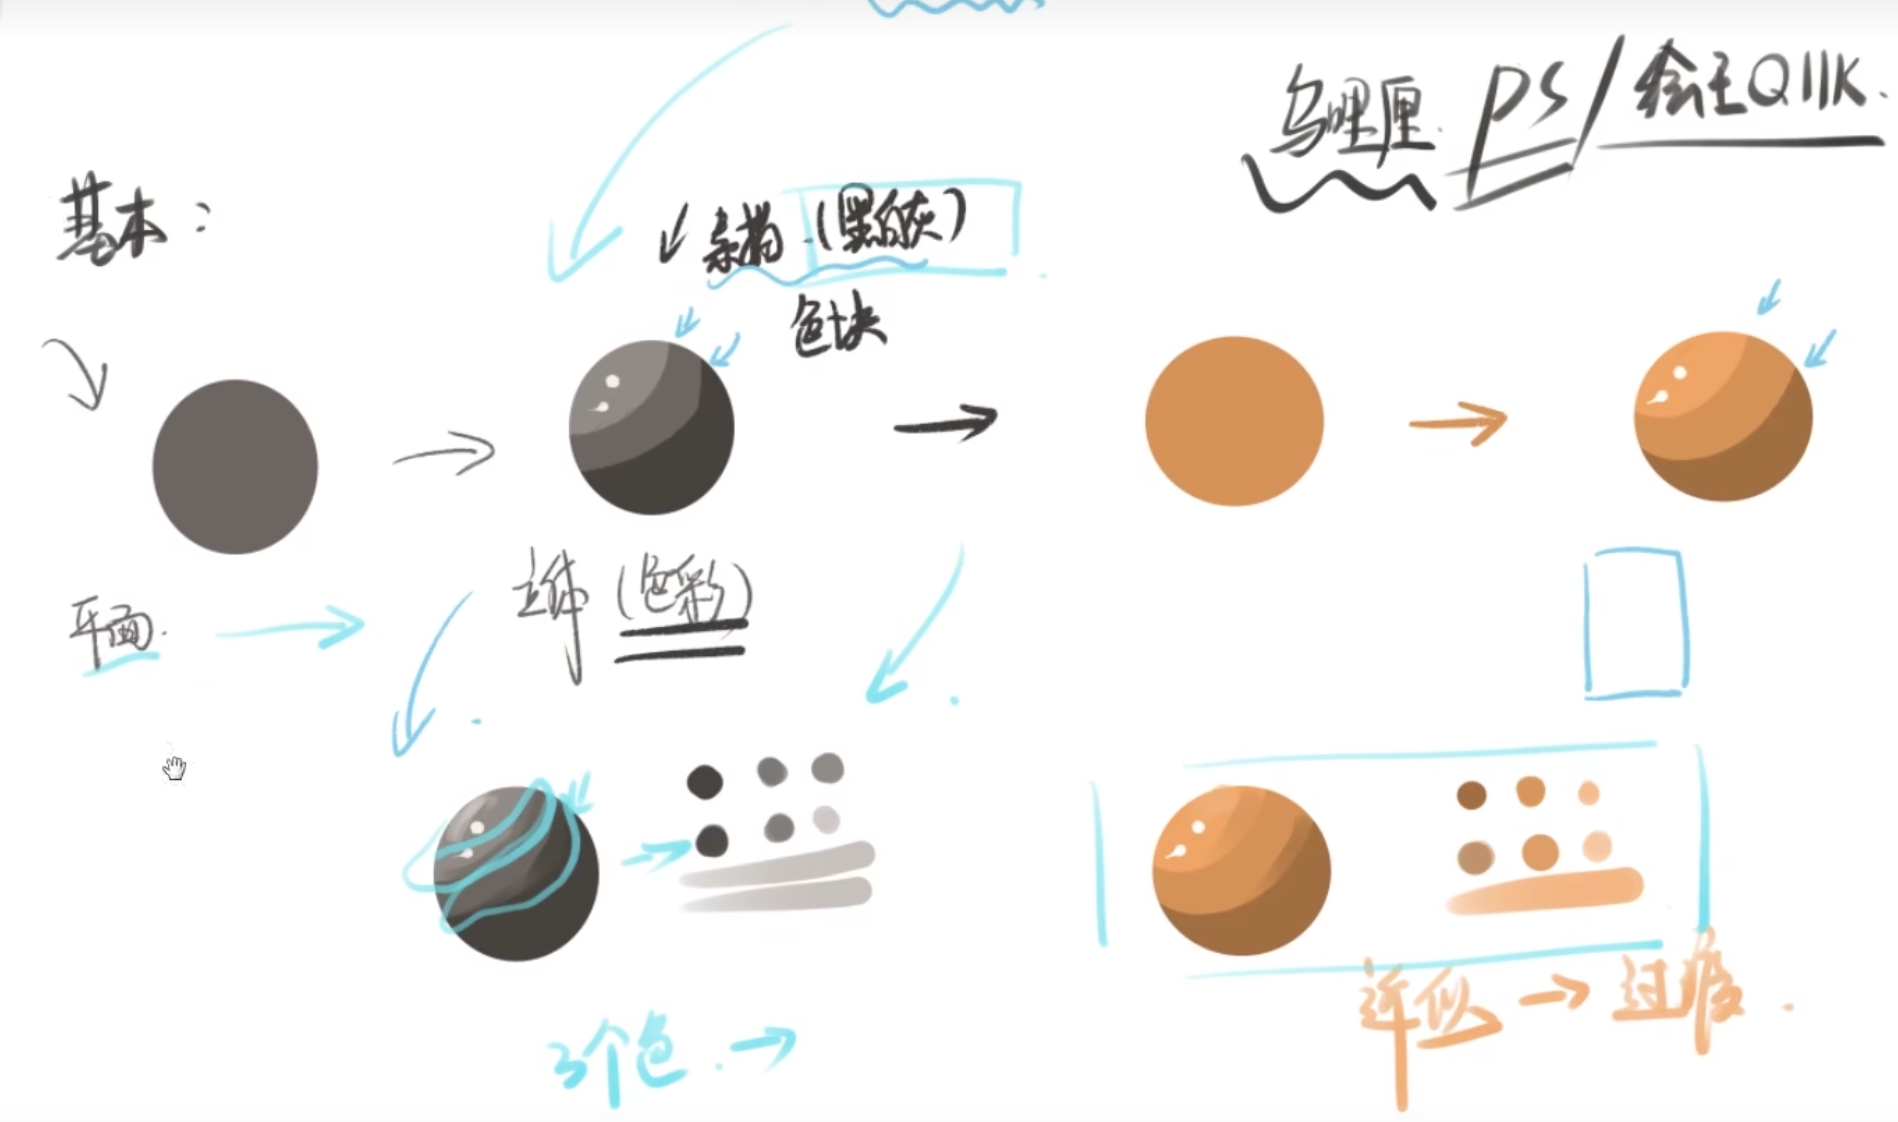 乌哩厘 PS/绘王Q11K.
基本:
素描(黑白灰)
色块
平面.
立体(色彩)
3个色.
近似→过度.